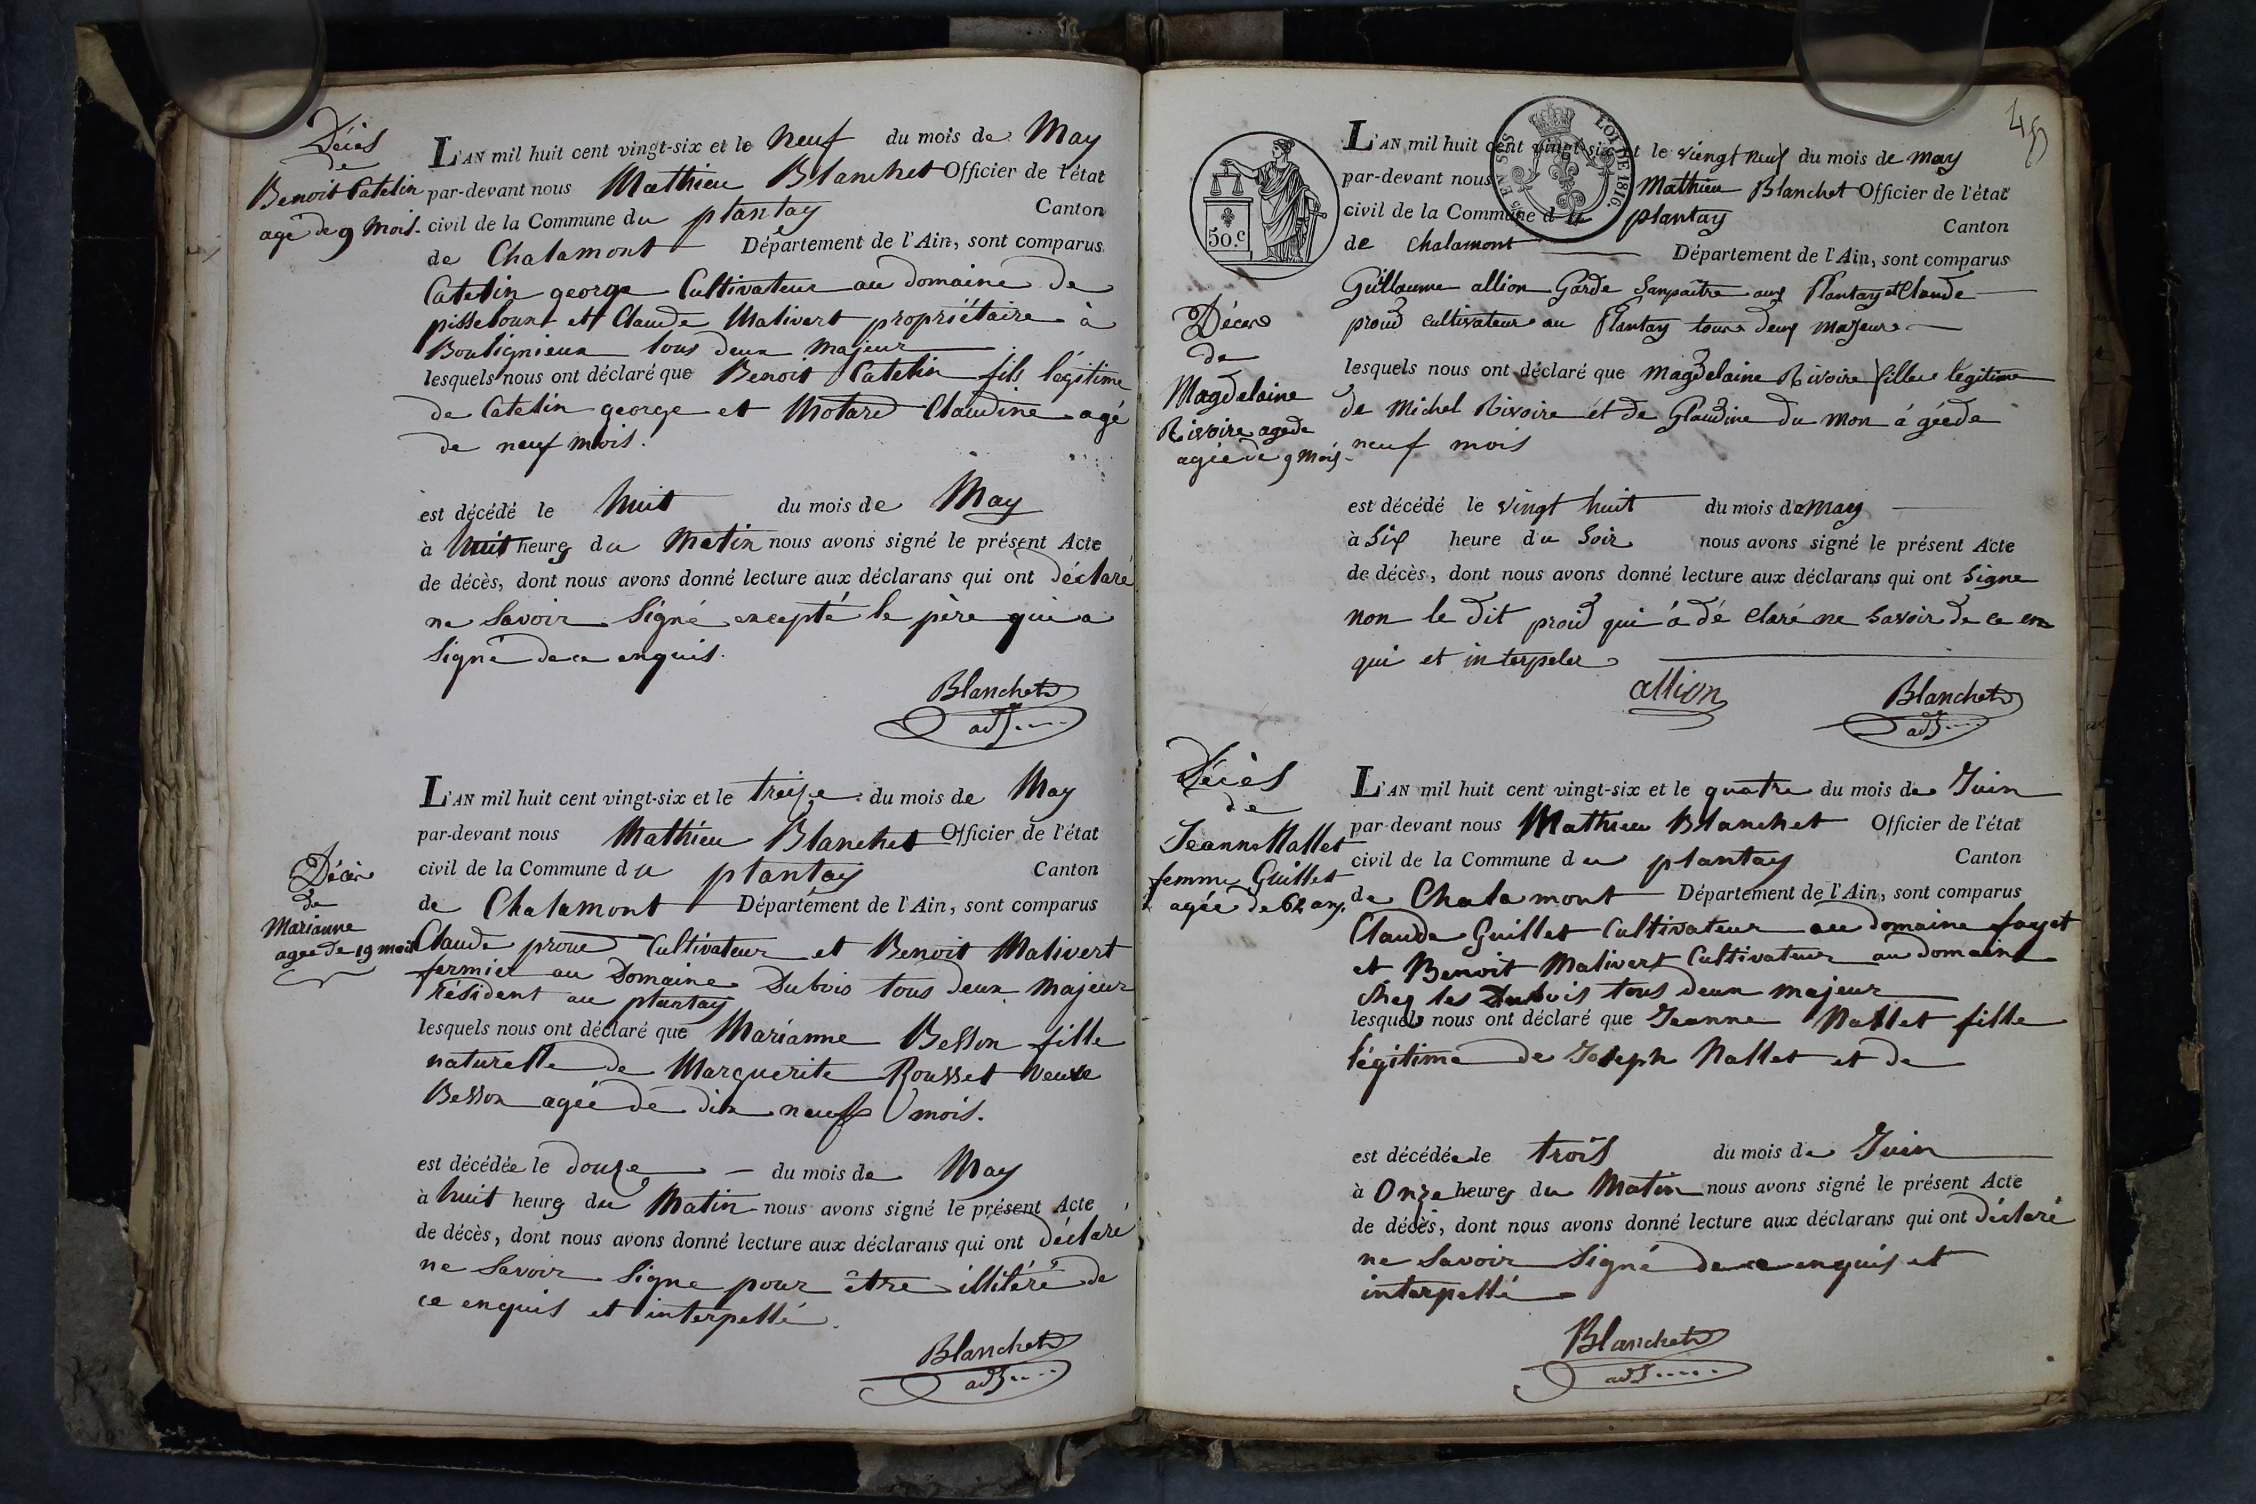 Décès
de
Benoit Catelin
agé de 9 mois.
L'AN mil huit cent vingt-six et le neuf du mois de May
par-devant nous Mathieu Blanchet Officier de l'état
civil de la Commune du plantay Canton
de Chalamont Département de l'Ain, sont comparus
Catelin george Cultivateur au domaine de
et Claude Malivert propriétaire à
Boulignieux tous deux majeur
lesquels nous ont déclaré que Benoit Catelin fils légitime
de Catelin george et Motard Claudine agé
de neuf mois.
est décédé le huit du mois de May
à huit heures du Matin nous avons signé le présent Acte
de décès, dont nous avons donné lecture aux déclarans qui ont déclaré
ne Savoir Signé excepté le père qui a
Signé de ce enquis.
Blanchet
adj....
Décès
de
Marianne
agée de 19 mois
L'AN mil huit cent vingt-six et le treize du mois de May
par-devant nous Mathieu Blanchet Officier de l'état
civil de la Commune du plantay Canton
de Chalamont Département de l'Ain, sont comparus
Claude proud Cultivateur et Benoit Malivert
fermier au Domaine Dubois tous deux majeur
résident au plantay
lesquels nous ont déclaré que Marianne Besson fille
naturelle de Marguerite Rousset veuve
Besson agée de dix neuf mois.
est décédée le douze du mois de May
à huit heures du Matin nous avons signé le présent Acte
de décès, dont nous avons donné lecture aux déclarans qui ont déclaré
ne Savoir Signe pour être illitéré de
ce enquis et interpellé.
Blanchet
adj....
45
50.c
EN SUS
LOI DE 1816.
Décès
de
Magdelaine
Rivoire agede
agée de 9 mois
L'AN mil huit cent vingt-six et le viengt neuf du mois de may
par-devant nous Mathieu Blanchet Officier de l'état
civil de la Commune du plantay Canton
de Chalamont Département de l'Ain, sont comparus
Guillaume allion Garde Sanpaitre aux Plantay et Claude
proud cultivateur au Plantay tous deux majeurs
lesquels nous ont déclaré que Magdelaine Rivoire fille légitime
de Michel Rivoire et de Glaudine du mon á géede
neuf mois
est décédé le vingt huit du mois de may
à Six heure du Soir nous avons signé le présent Acte
de décès, dont nous avons donné lecture aux déclarans qui ont Signe
non le dit proud qui á dé claré ne savoir de ce en
qui et interpeler
allion Blanchet
adj....
Décès
de
Jeanne Nallet
femme Guillet
agée de 62 ans.
L'AN mil huit cent vingt-six et le quatre du mois de Juin
par-devant nous Mathieu Blanchet Officier de l'état
civil de la Commune du plantay Canton
de Chalamont Département de l'Ain, sont comparus
Claude Guillet Cultivateur au domaine fayet
et Benoit Malivert Cultivateur au domaine
chez les Dubois tous deux majeur
lesquels nous ont déclaré que Jeanne Nallet fille
légitime de Joseph Nallet et de
est décédée le trois du mois de Juin
à Onze heures du Matin nous avons signé le présent Acte
de décès, dont nous avons donné lecture aux déclarans qui ont déclaré
ne Savoir Signé de ce enquis et
interpellé
Blanchet
adj.....